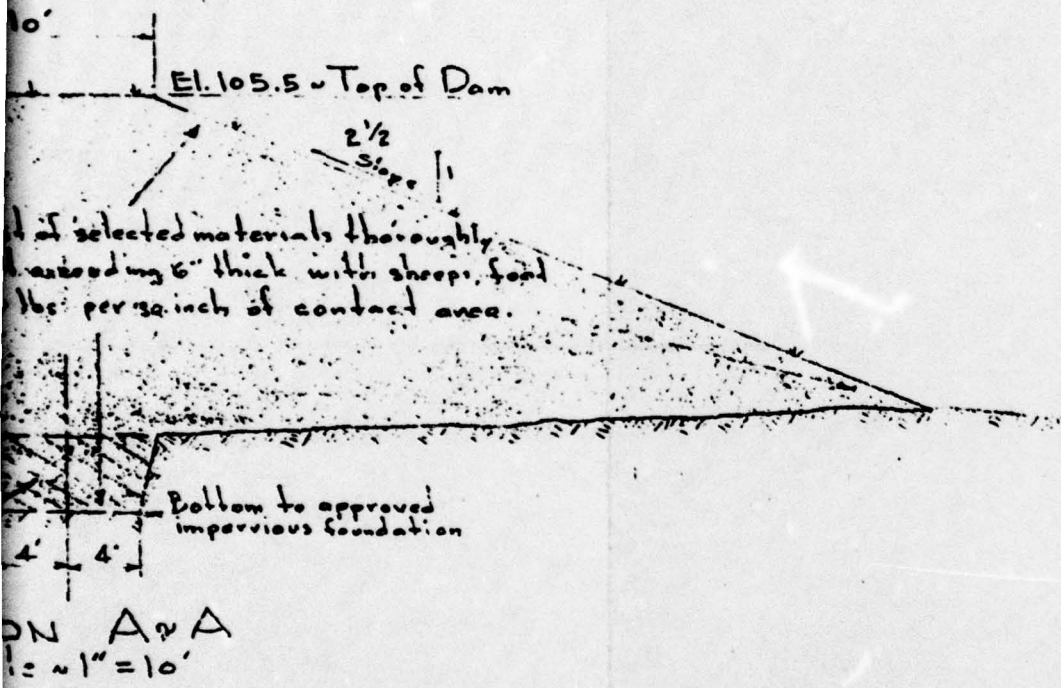 10'
El. 105.5 ~ Top of Dam
2 1/2
Slope
1
t of selected materials thoroughly
exceeding 6" thick with sheeps foot
lbs per sq. inch of contact area.
Bottom to approved
impervious foundation
4' 4'
ON A ~ A
~ 1" = 10'